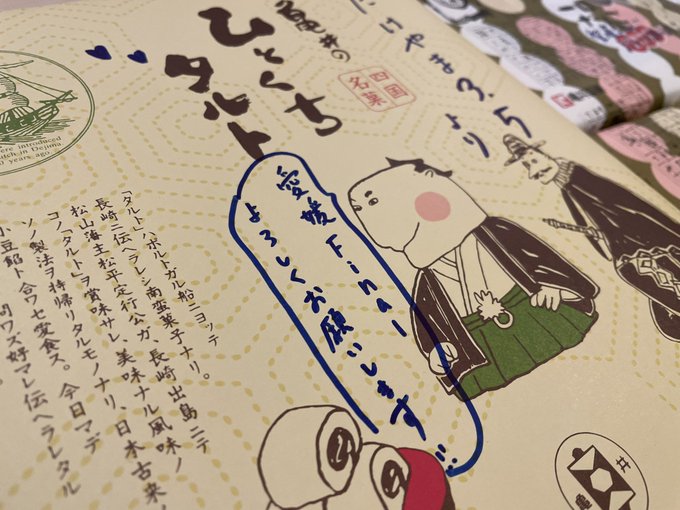 亀井の
ひとくち
タルト
四国
名菓
たけやま3.5
より
愛媛Final
よろしくお願いします
ere introduced
utch in Dejima
0 years ago
「タルト」ハポルトガル船ニヨッテ
長崎ニ伝ヘラレシ南蛮菓子ナリ。
松山藩主松平定行公ガ、長崎出島ニテ
コノ「タルト」ヲ賞味サレ、美味ナル風味ノ
ソノ製法ヲ持帰リタルモノナリ、日本古来
小豆餡ト合ワセ変食ス。今日マデ
問ワズ好マレ伝ヘラレタル
亀
井